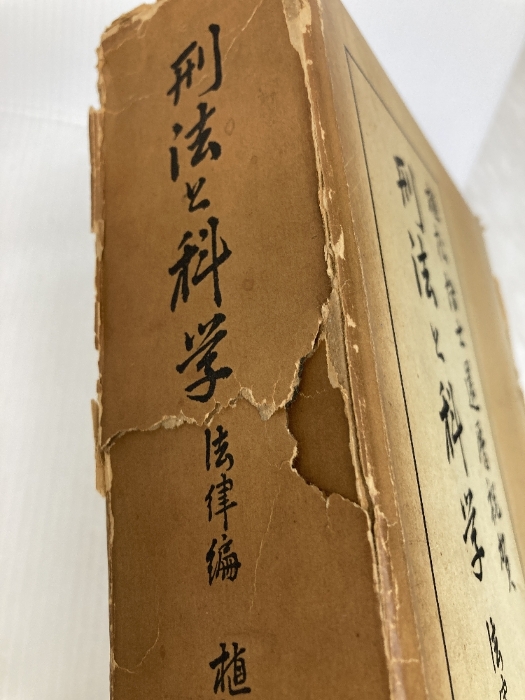 刑法と科学 法律編 植
植松博士還暦祝賀
刑法と科学 法律